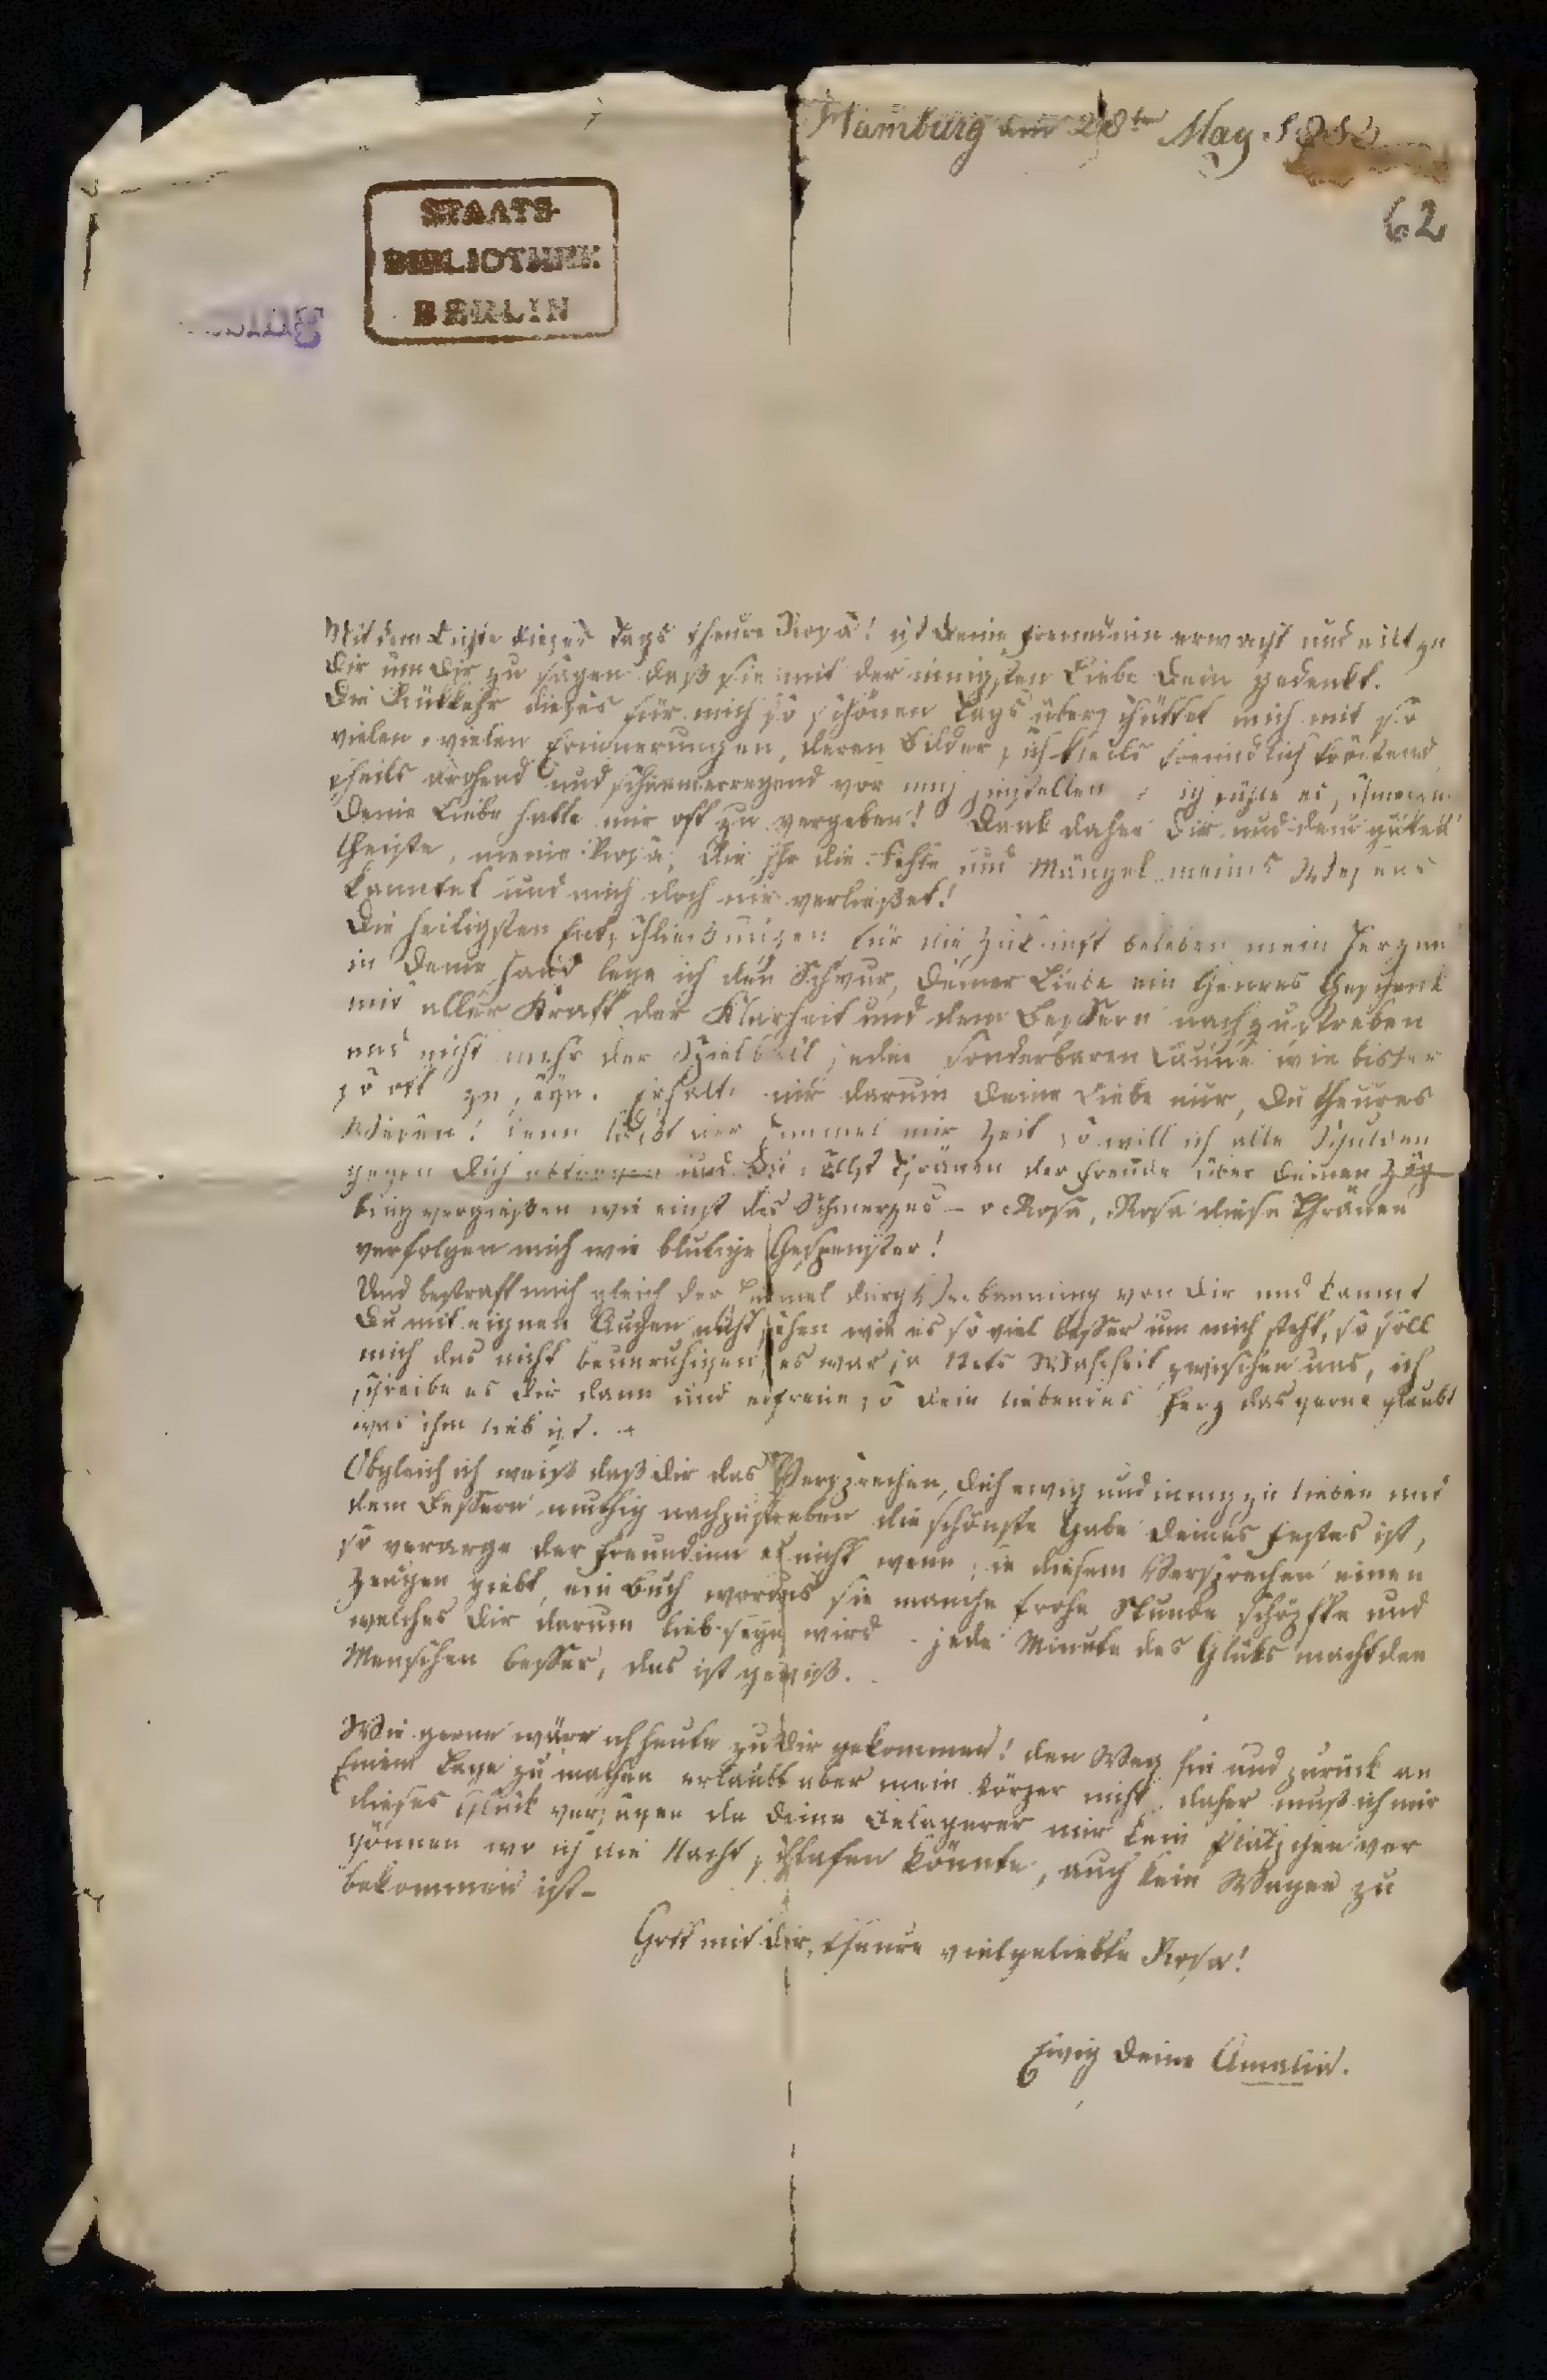 Hamburg den 28ten May
62
STAATS-
BIBLIOTHEK
BERLIN
Mit dem Lichte dieses Tags theure Rosa! ist Deine Freundinn erwacht und eilt zu
Dir um Dir zu sagen daß sie mit der innigsten Liebe Dein gedenkt.
Die Rükkehr dieses für mich so schönen Tags überschüttet mich mit so
vielen, vielen Erinnerungen, deren Bilder sich theils freundlich tröstend
theils drohend und schauererregend vor mich hinstellen ich fühle es,
Deine Liebe hatte mir oft zu vergeben! Dank daher Dir und dem guten
Geiste, meine Rosa, die Ihr die Fehle und Mängel meines Wesens
kanntet und mich doch nie verließet!
Die heiligsten Entschließungen für die Zukunft beleben mein Herz und
in Deine Hand lege ich den Schwur, Deiner Liebe ein theures Geschenk
mit aller Kraft der Klarheit und dem Bessern nachzustreben
und nicht mehr der Spielball jeder sonderbaren Laune wie bisher
so oft zu seyn. Erhalte mir darum Deine Liebe nur, Du theures
Wesen! denn läßt der Himmel mir Zeit so will ich alle Schulden
gegen Dich abtragen und Du sollst Thränen der Freude über Deinen Zög
ling vergießen wie einst des Schmerzes – o Rosa, Rosa diese Thränen
verfolgen mich wie blutige Gespenster!
Und bestraft mich gleich der Himmel durch Verbannung von Dir und kannst
Du mit eignen Augen nicht sehen wie es so viel besser um mich steht, so soll
mich das nicht beunruhigen, es war ja stets Wahrheit zwischen uns, ich
schreibe es Dir dann und erfreue so Dein liebendes Herz das gerne glaubt
was ihm lieb ist. –
Obgleich ich weiß daß Dir das Versprechen, Dich ewig und innig zu lieben und
dem Bessern muthig nachzustreben die schönste Gabe Deines Festes ist,
so verarge der Freundinn es nicht wenn sie diesem Versprechen einen
Zeugen giebt, ein Buch woraus sie manche frohe Stunde schöpfte und
welches Dir darum lieb seyn wird – jede Minute des Glüks macht den
Menschen besser, das ist gewiß.
Wie gerne wäre ich heute zu Dir gekommen! den Weg hin und zurück an
Einem Tage zu machen erlaubt aber mein Körper nicht, daher muß ich mir
dieses Glück versagen da Deine Belagerer mir kein Plätzchen ver
gönnen wo ich die Nacht schlafen könnte, auch kein Wagen zu
bekommen ist –
Gott mit Dir, theure vielgeliebte Rosa!
Ewig Deine Amalie.